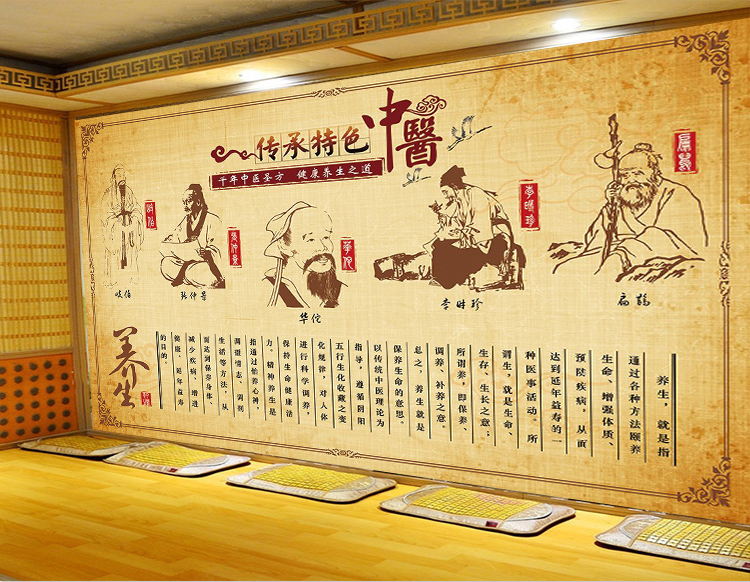 中醫
传承特色
千年中医圣方 健康养生之道
岐伯
张仲景
华佗
李時珍
岐伯
张仲景
华佗
李时珍
扁鹊
养生，就是指
通过各种方法颐养
生命、增强体质、
预防疾病，从而
达到延年益寿的一
种医事活动。所
谓生，就是生命、
生存、生长之意；
所谓养，即保养、
调养、补养之意。
总之，养生就是
保养生命的意思。
以传统中医理论为
指导，遵循阴阳
五行生化收藏之变
化规律，对人体
进行科学调养，
保持生命健康活
力。精神养生是
指通过怡养心神，
调摄情志、调剂
生活等方法，从
而达到保养身体、
减少疾病、增进
健康、延年益寿
的目的。
养生